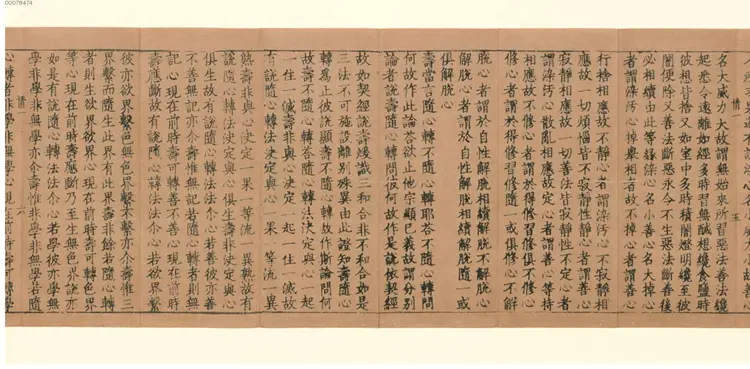 名大威力大故謂無始來所習惡法善法纔
起悉令遠離如經多時習無醎想纔食鹽時
彼想皆捨又如室中多時積闇燈明纔至彼
闇便除又善法斷惡永令不生惡法斷善後
必相續由此等緣染心名小善心名大掉心
者謂染汚心掉舉相者故不掉心者謂善心
行捨相應故不靜心者謂染汚心不寂靜相
應故一切煩惱皆不寂靜性靜心者謂善心
寂靜相應故一切善法皆寂靜性不定心者
謂染汚心散亂相應故定心者謂善心等持
相應故不修心者謂於得修習修俱不修心
修心者謂於得修習修隨一或俱修心不解
脫心者謂於自性解脫相續解脫不解脫心
解脫心者謂於自性解脫相續解脫隨一或
俱解脫心
壽當言隨心轉不隨心轉耶答不隨心轉問
何故作此論答欲止他宗顯已義故謂分別
論者說壽隨心轉問彼何故作是說依契經
故如契經說壽煖識三和合非不和合如是
三法不可施設離別殊異由此證知壽隨心
轉爲止彼說顯壽不隨心轉故作斯論問何
故壽不隨心轉答隨心轉法決定與心一起
一住一滅壽非與心決定一起一住一滅故
有說隨心轉法決定與心一果一等流一異
熟壽非與心決定一果一等流一異熟故有
說隨心轉法決定與心俱生壽非決定與心
俱生故有說隨心轉法法介心若善彼亦善
不善無記亦介壽惟無記若隨心轉者則無
記心現在前時壽可轉善不善心現在前時
壽應斷故有說隨心轉法法介心若欲界繫
彼亦欲界繫色無色界繫不繫亦介壽惟三
界繫而隨生此界有此界壽非餘若隨心轉
者則生欲界欲界心現在前時壽可轉色界
等心現在前時壽應斷乃至生無色界說亦
如是有說隨心轉法法介心若學彼亦學無
學非學非無學亦介壽惟非學非無學若隨
心轉者非學非無學心現在前時壽可轉學